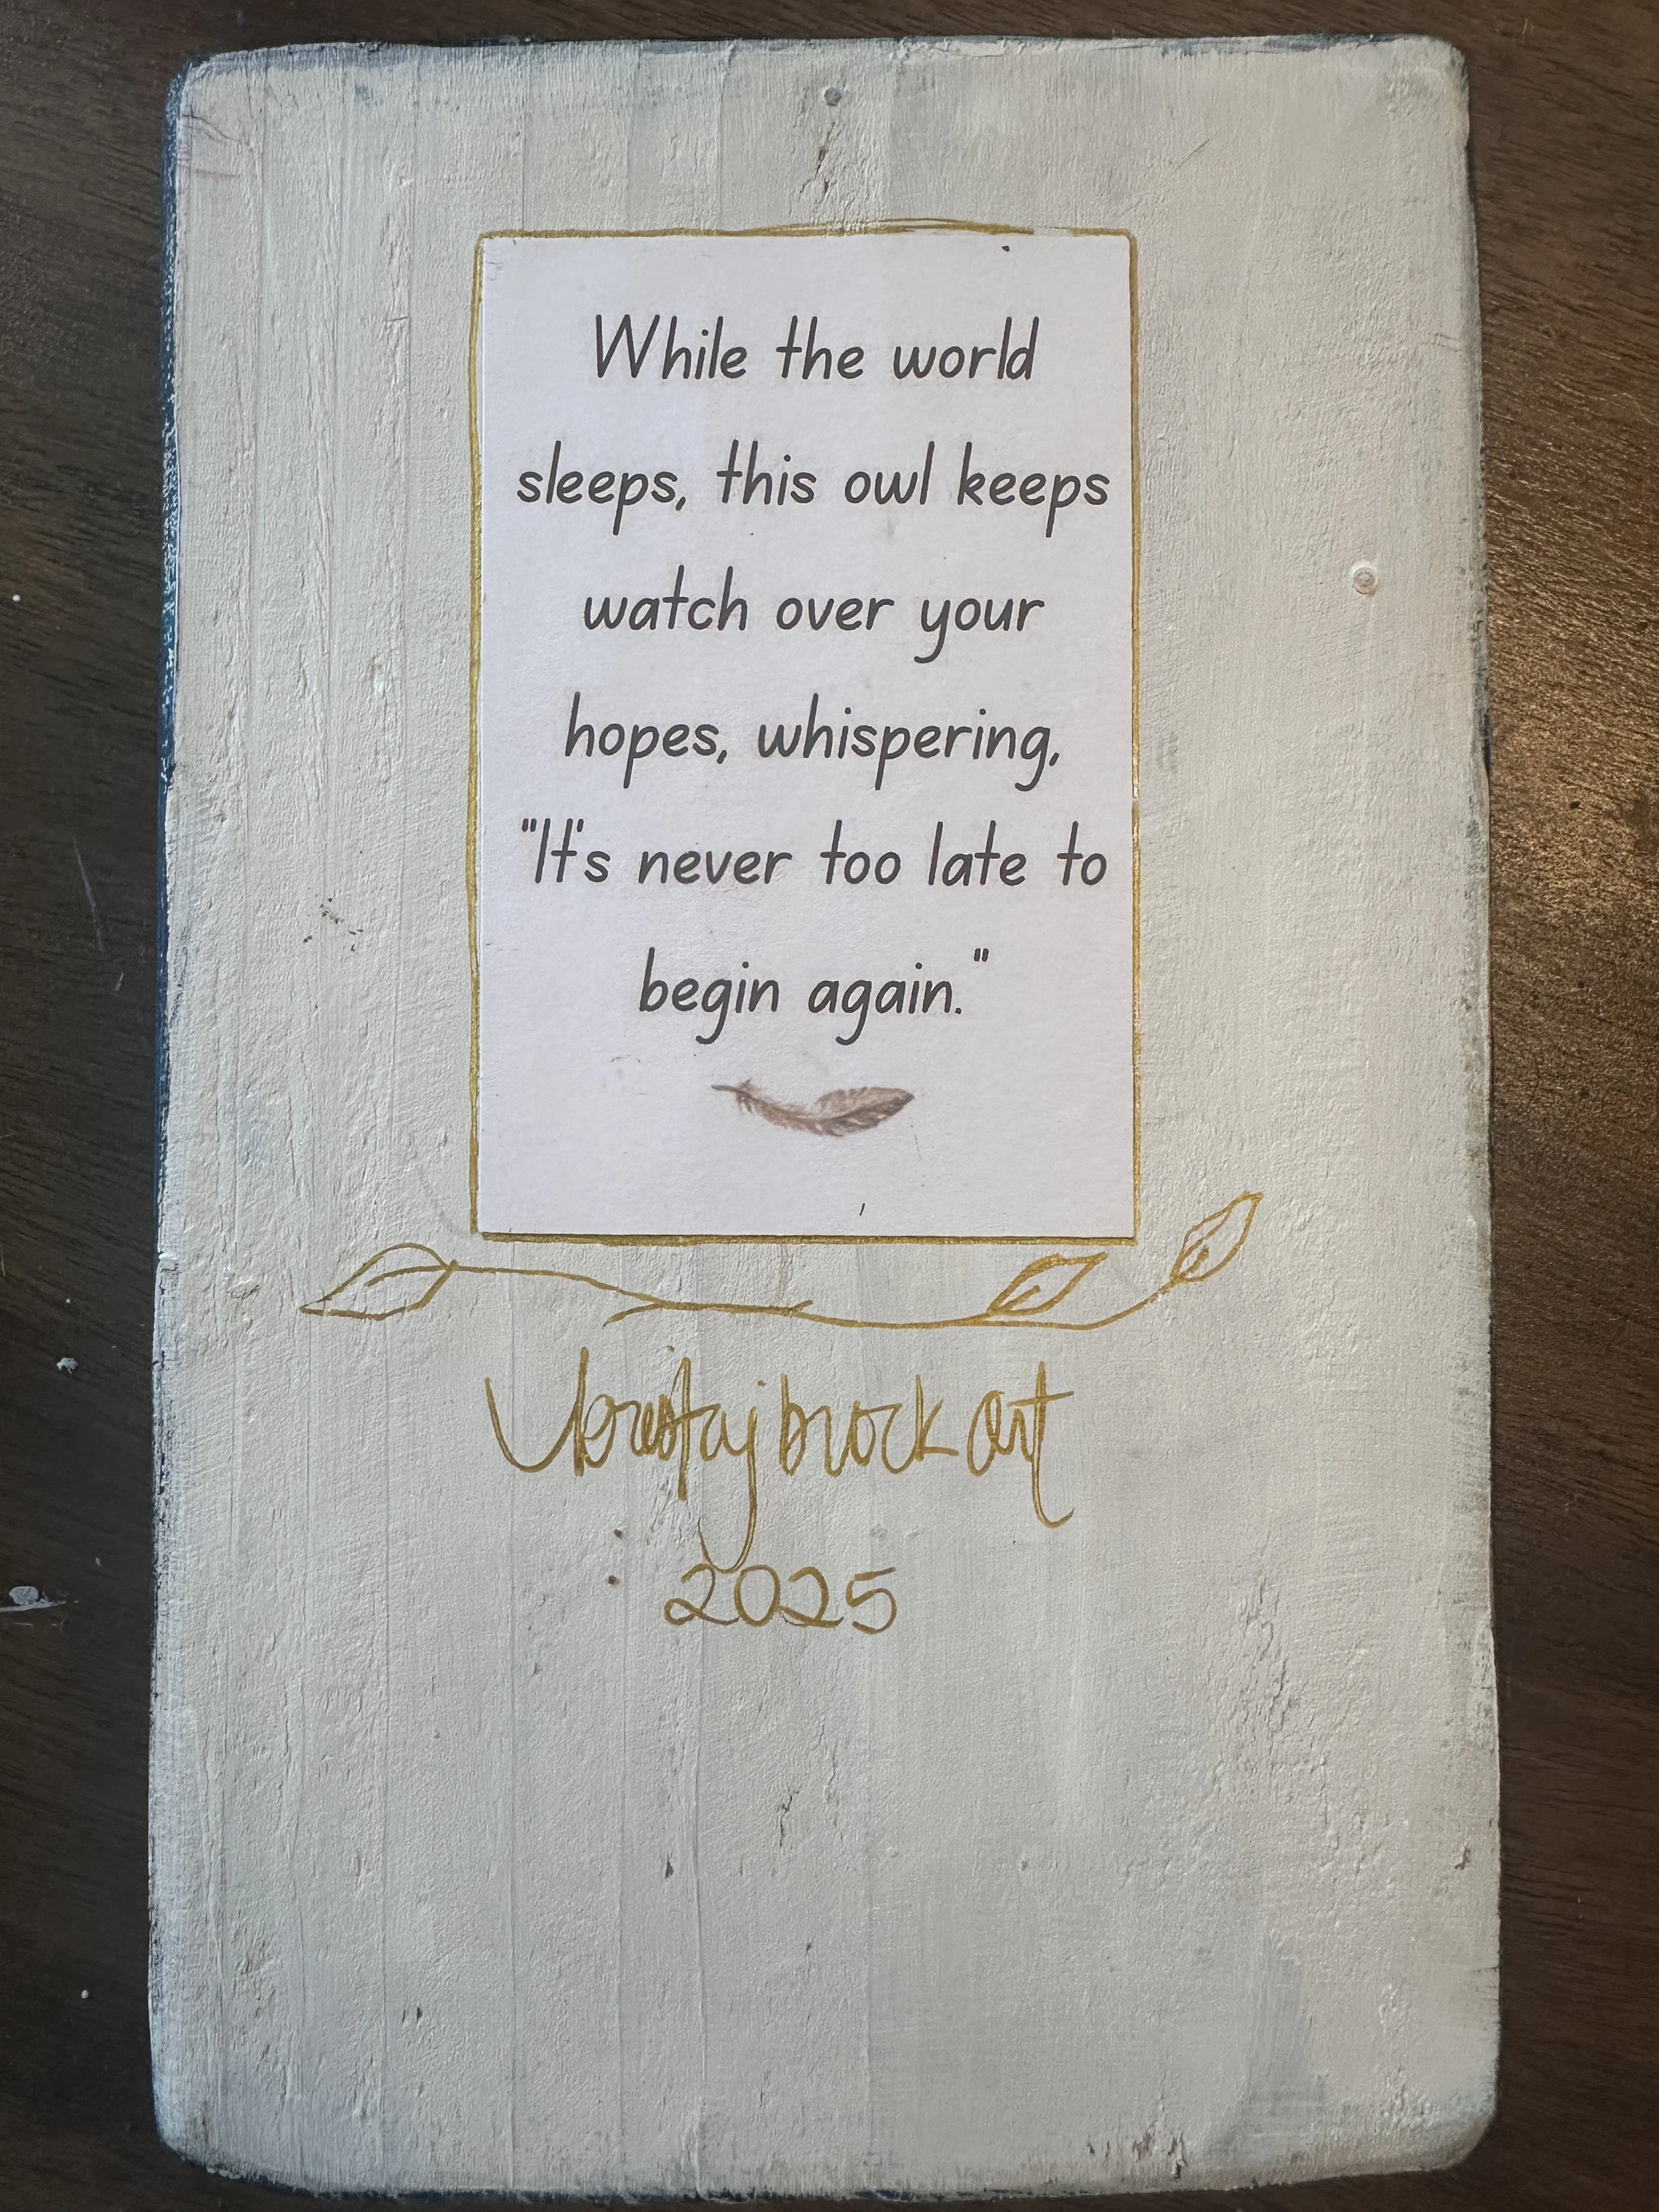 While the world
sleeps, this owl keeps
watch over your
hopes, whispering,
"It's never too late to
begin again."
brock art
2025